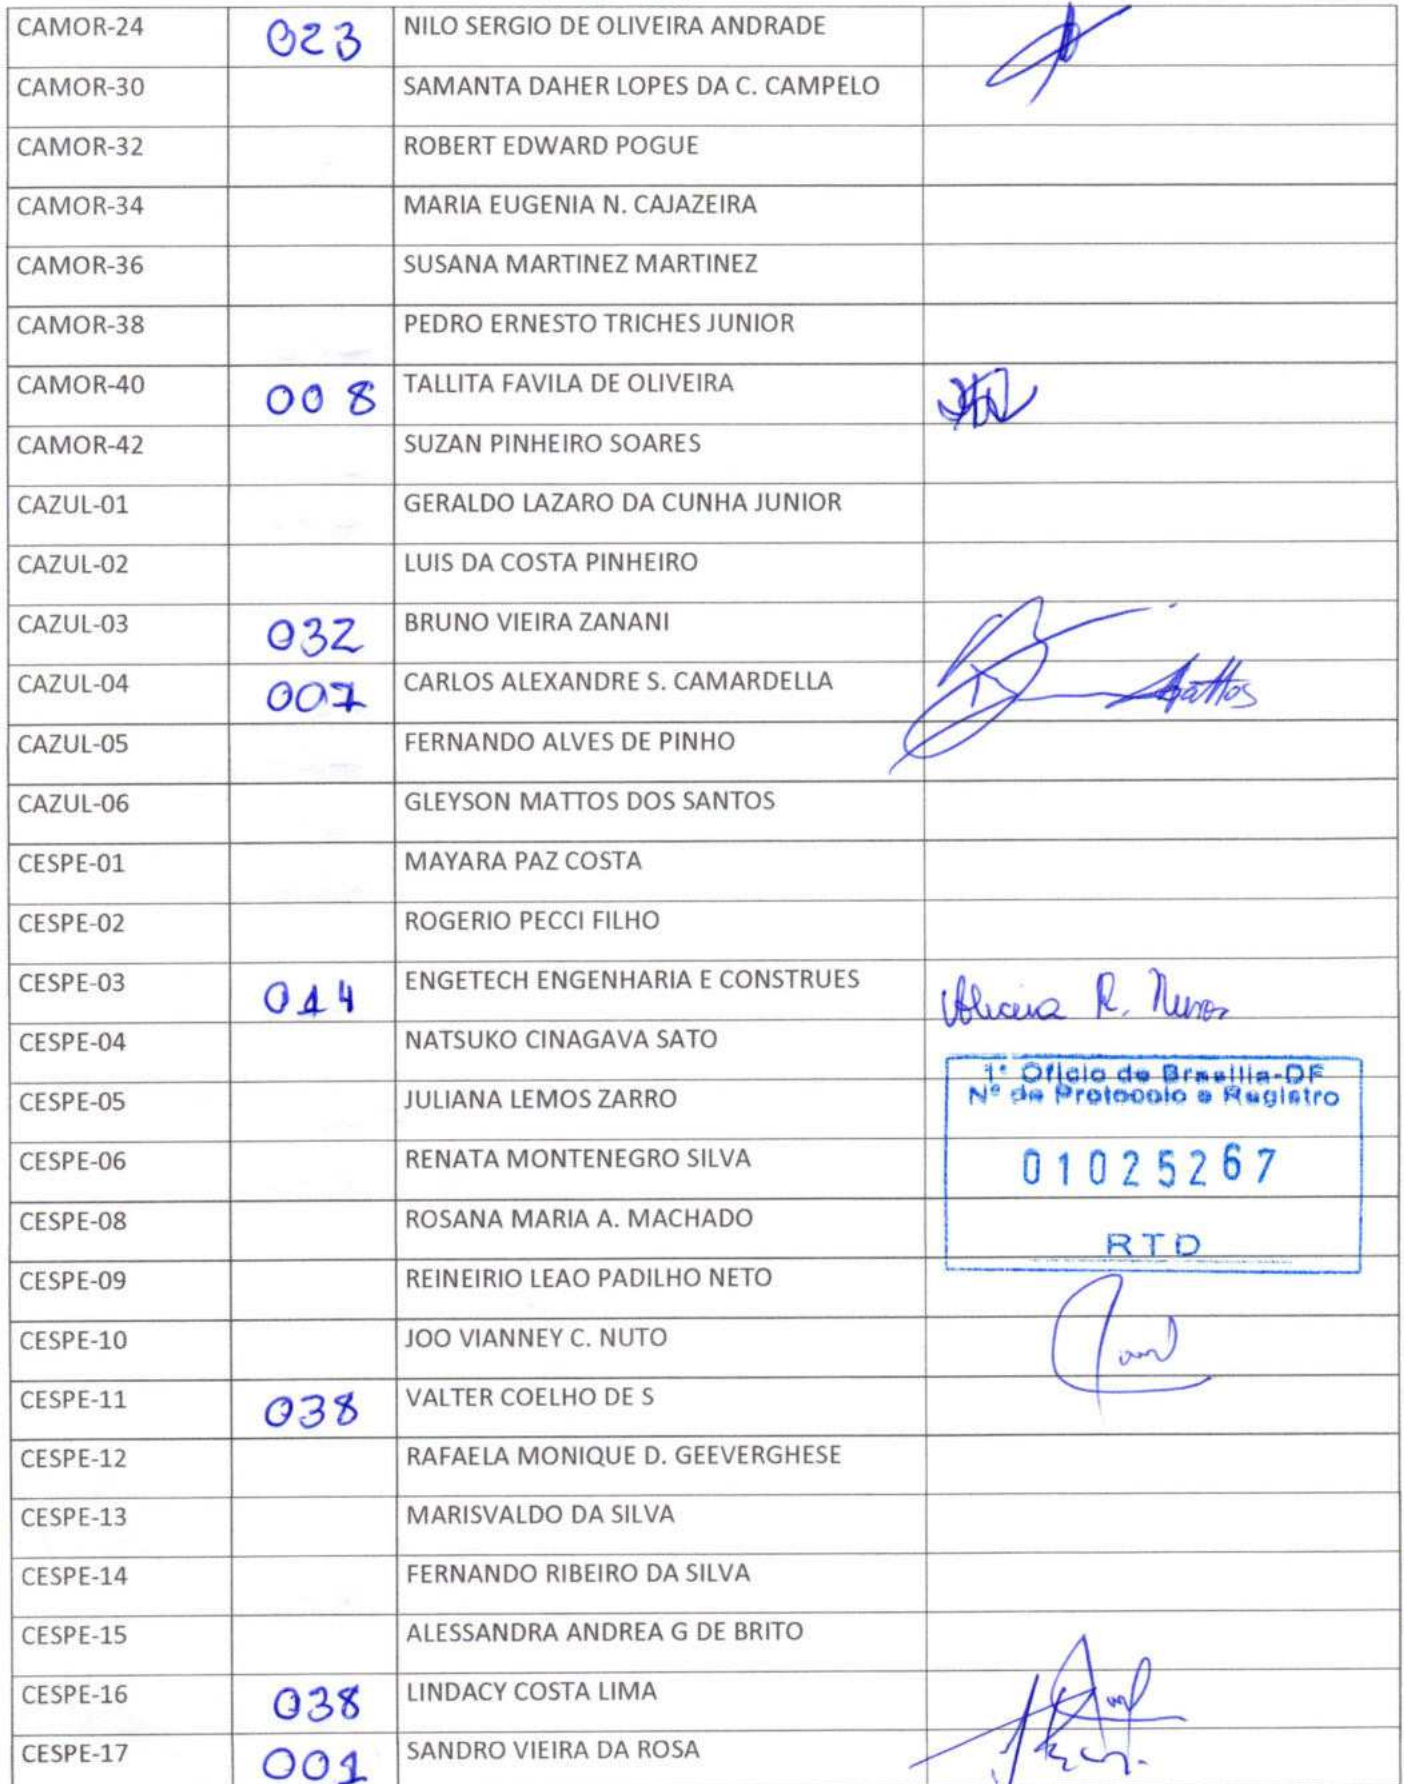 CAMOR-24 023 NILO SERGIO DE OLIVEIRA ANDRADE
CAMOR-30 SAMANTA DAHER LOPES DA C. CAMPELO
CAMOR-32 ROBERT EDWARD POGUE
CAMOR-34 MARIA EUGENIA N. CAJAZEIRA
CAMOR-36 SUSANA MARTINEZ MARTINEZ
CAMOR-38 PEDRO ERNESTO TRICHES JUNIOR
CAMOR-40 008 TALLITA FAVILA DE OLIVEIRA
CAMOR-42 SUZAN PINHEIRO SOARES
CAZUL-01 GERALDO LAZARO DA CUNHA JUNIOR
CAZUL-02 LUIS DA COSTA PINHEIRO
CAZUL-03 032 BRUNO VIEIRA ZANANI
CAZUL-04 007 CARLOS ALEXANDRE S. CAMARDELLA
CAZUL-05 FERNANDO ALVES DE PINHO
CAZUL-06 GLEYSON MATTOS DOS SANTOS
CESPE-01 MAYARA PAZ COSTA
CESPE-02 ROGERIO PECCI FILHO
CESPE-03 014 ENGETECH ENGENHARIA E CONSTRUES R. Nunes
CESPE-04 NATSUKO CINAGAVA SATO
1º Ofício de Brasília-DF
CESPE-05 JULIANA LEMOS ZARRO Nº de Protocolo e Registro
CESPE-06 RENATA MONTENEGRO SILVA 01025267
CESPE-08 ROSANA MARIA A. MACHADO RTD
CESPE-09 REINEIRIO LEAO PADILHO NETO
CESPE-10 JOO VIANNEY C. NUTO
CESPE-11 038 VALTER COELHO DE S
CESPE-12 RAFAELA MONIQUE D. GEEVERGHESE
CESPE-13 MARISVALDO DA SILVA
CESPE-14 FERNANDO RIBEIRO DA SILVA
CESPE-15 ALESSANDRA ANDREA G DE BRITO
CESPE-16 038 LINDACY COSTA LIMA
CESPE-17 001 SANDRO VIEIRA DA ROSA